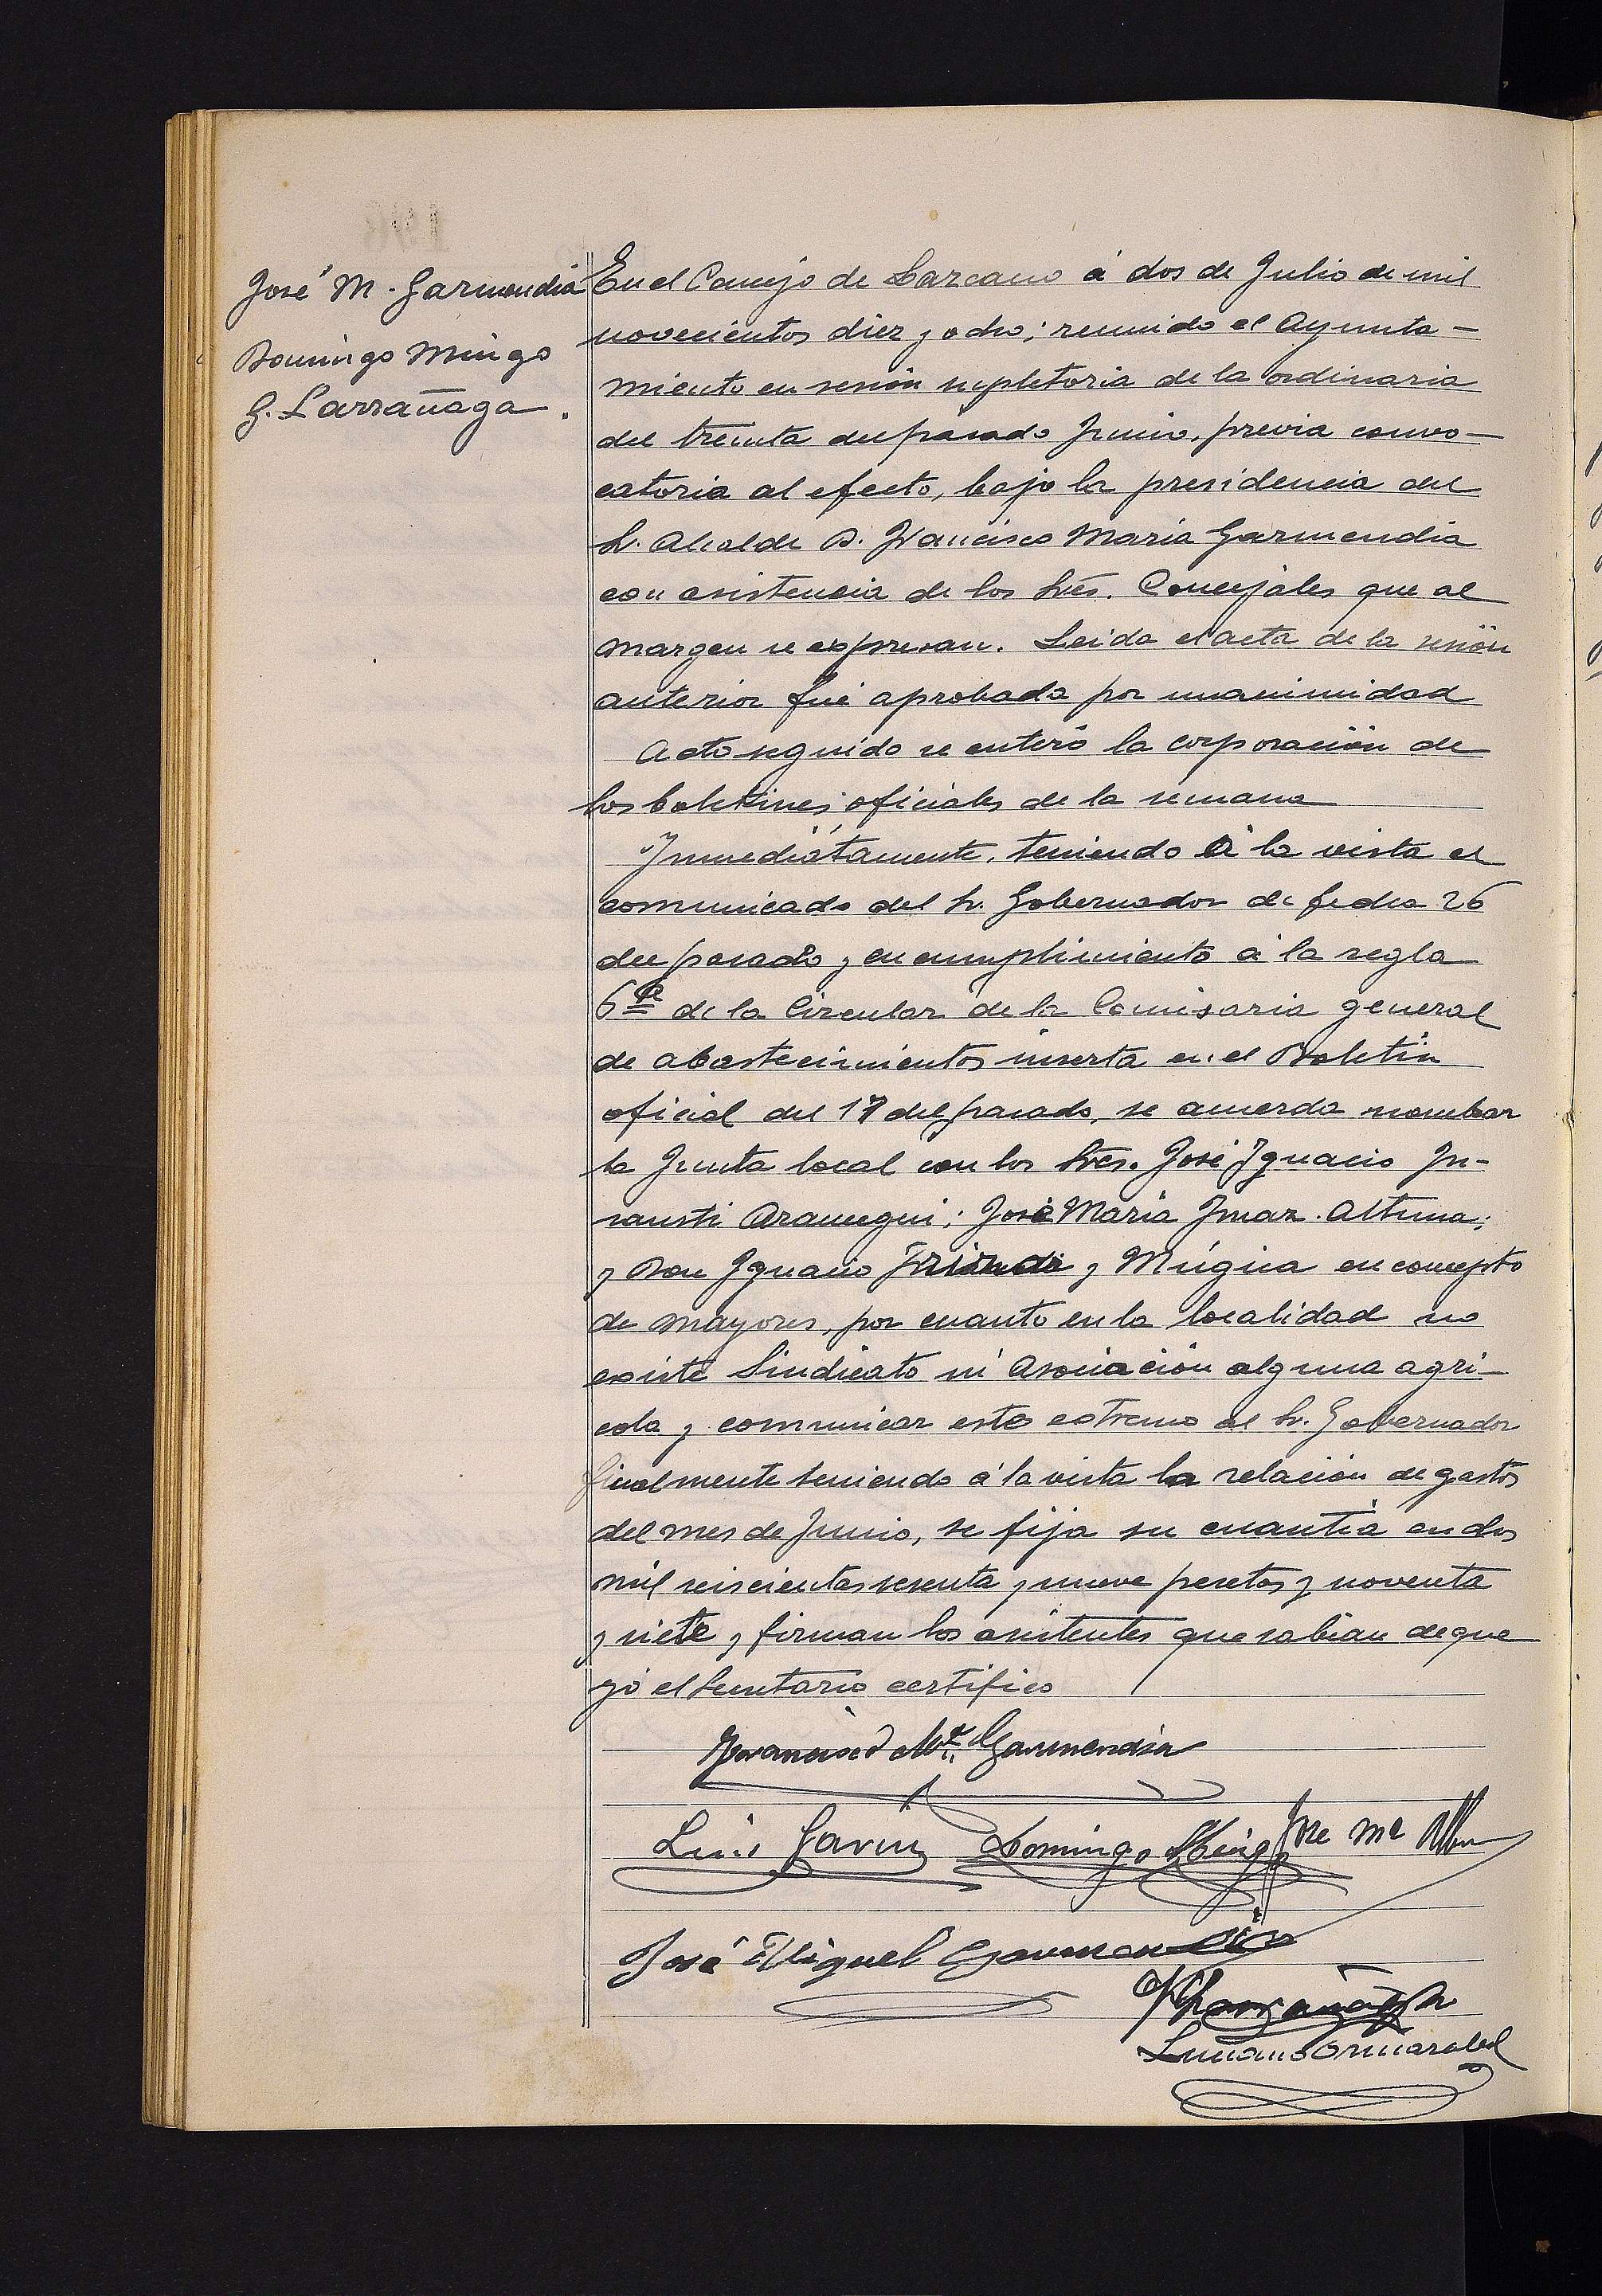 José M. Garmendia
Domingo Mingo
G. Larrañaga.
En el Concejo de Lazcano á dos de Julio de mil
novecientos diez y ocho; reunido el Ayunta-
miento en sesión supletoria de la ordinaria
del treinta del pasado Junio, previa convo-
catoria al efecto, bajo la presidencia del
Sr. Alcalde D. Francisco María Garmendia
con asistencia de los Sres. Concejales que al
margen se expresan. Leida el acta de la sesión
anterior fué aprobada por unanimidad
Acto seguido se enteró la corporación de
los boletines oficiales de la semana
Inmediátamente, teniendo á la vista el
comunicado del Sr. Gobernador de fecha 26
del pasado y en cumplimiento á la regla
6ª de la Circular de la Comisaria general
de abastecimientos inserta en el Boletín
oficial del 17 del pasado, se acuerda nombrar
la Junta local con los Sres. José Ignacio In-
sausti Aramegui; José María Imaz Altuna;
y Don Ignacio y Múgica en concepto
de mayores, por cuanto en la localidad no
existe Sindicato ni Asociación alguna agri-
cola y comunicar este extremo al Sr. Gobernador
finalmente teniendo á la vista la relación de gastos
del mes de Junio, se fija su cuantía en dos
mil seiscientas sesenta y nueve pesetas y noventa
y siete y firman los asistentes que sabían de que
yo el Secretario certifico
Francisco Mª Garmendia
Luis Garin Domingo Mingo José Mª
José Miguel Garmendia
Larrañaga
Luciano Ormazabal